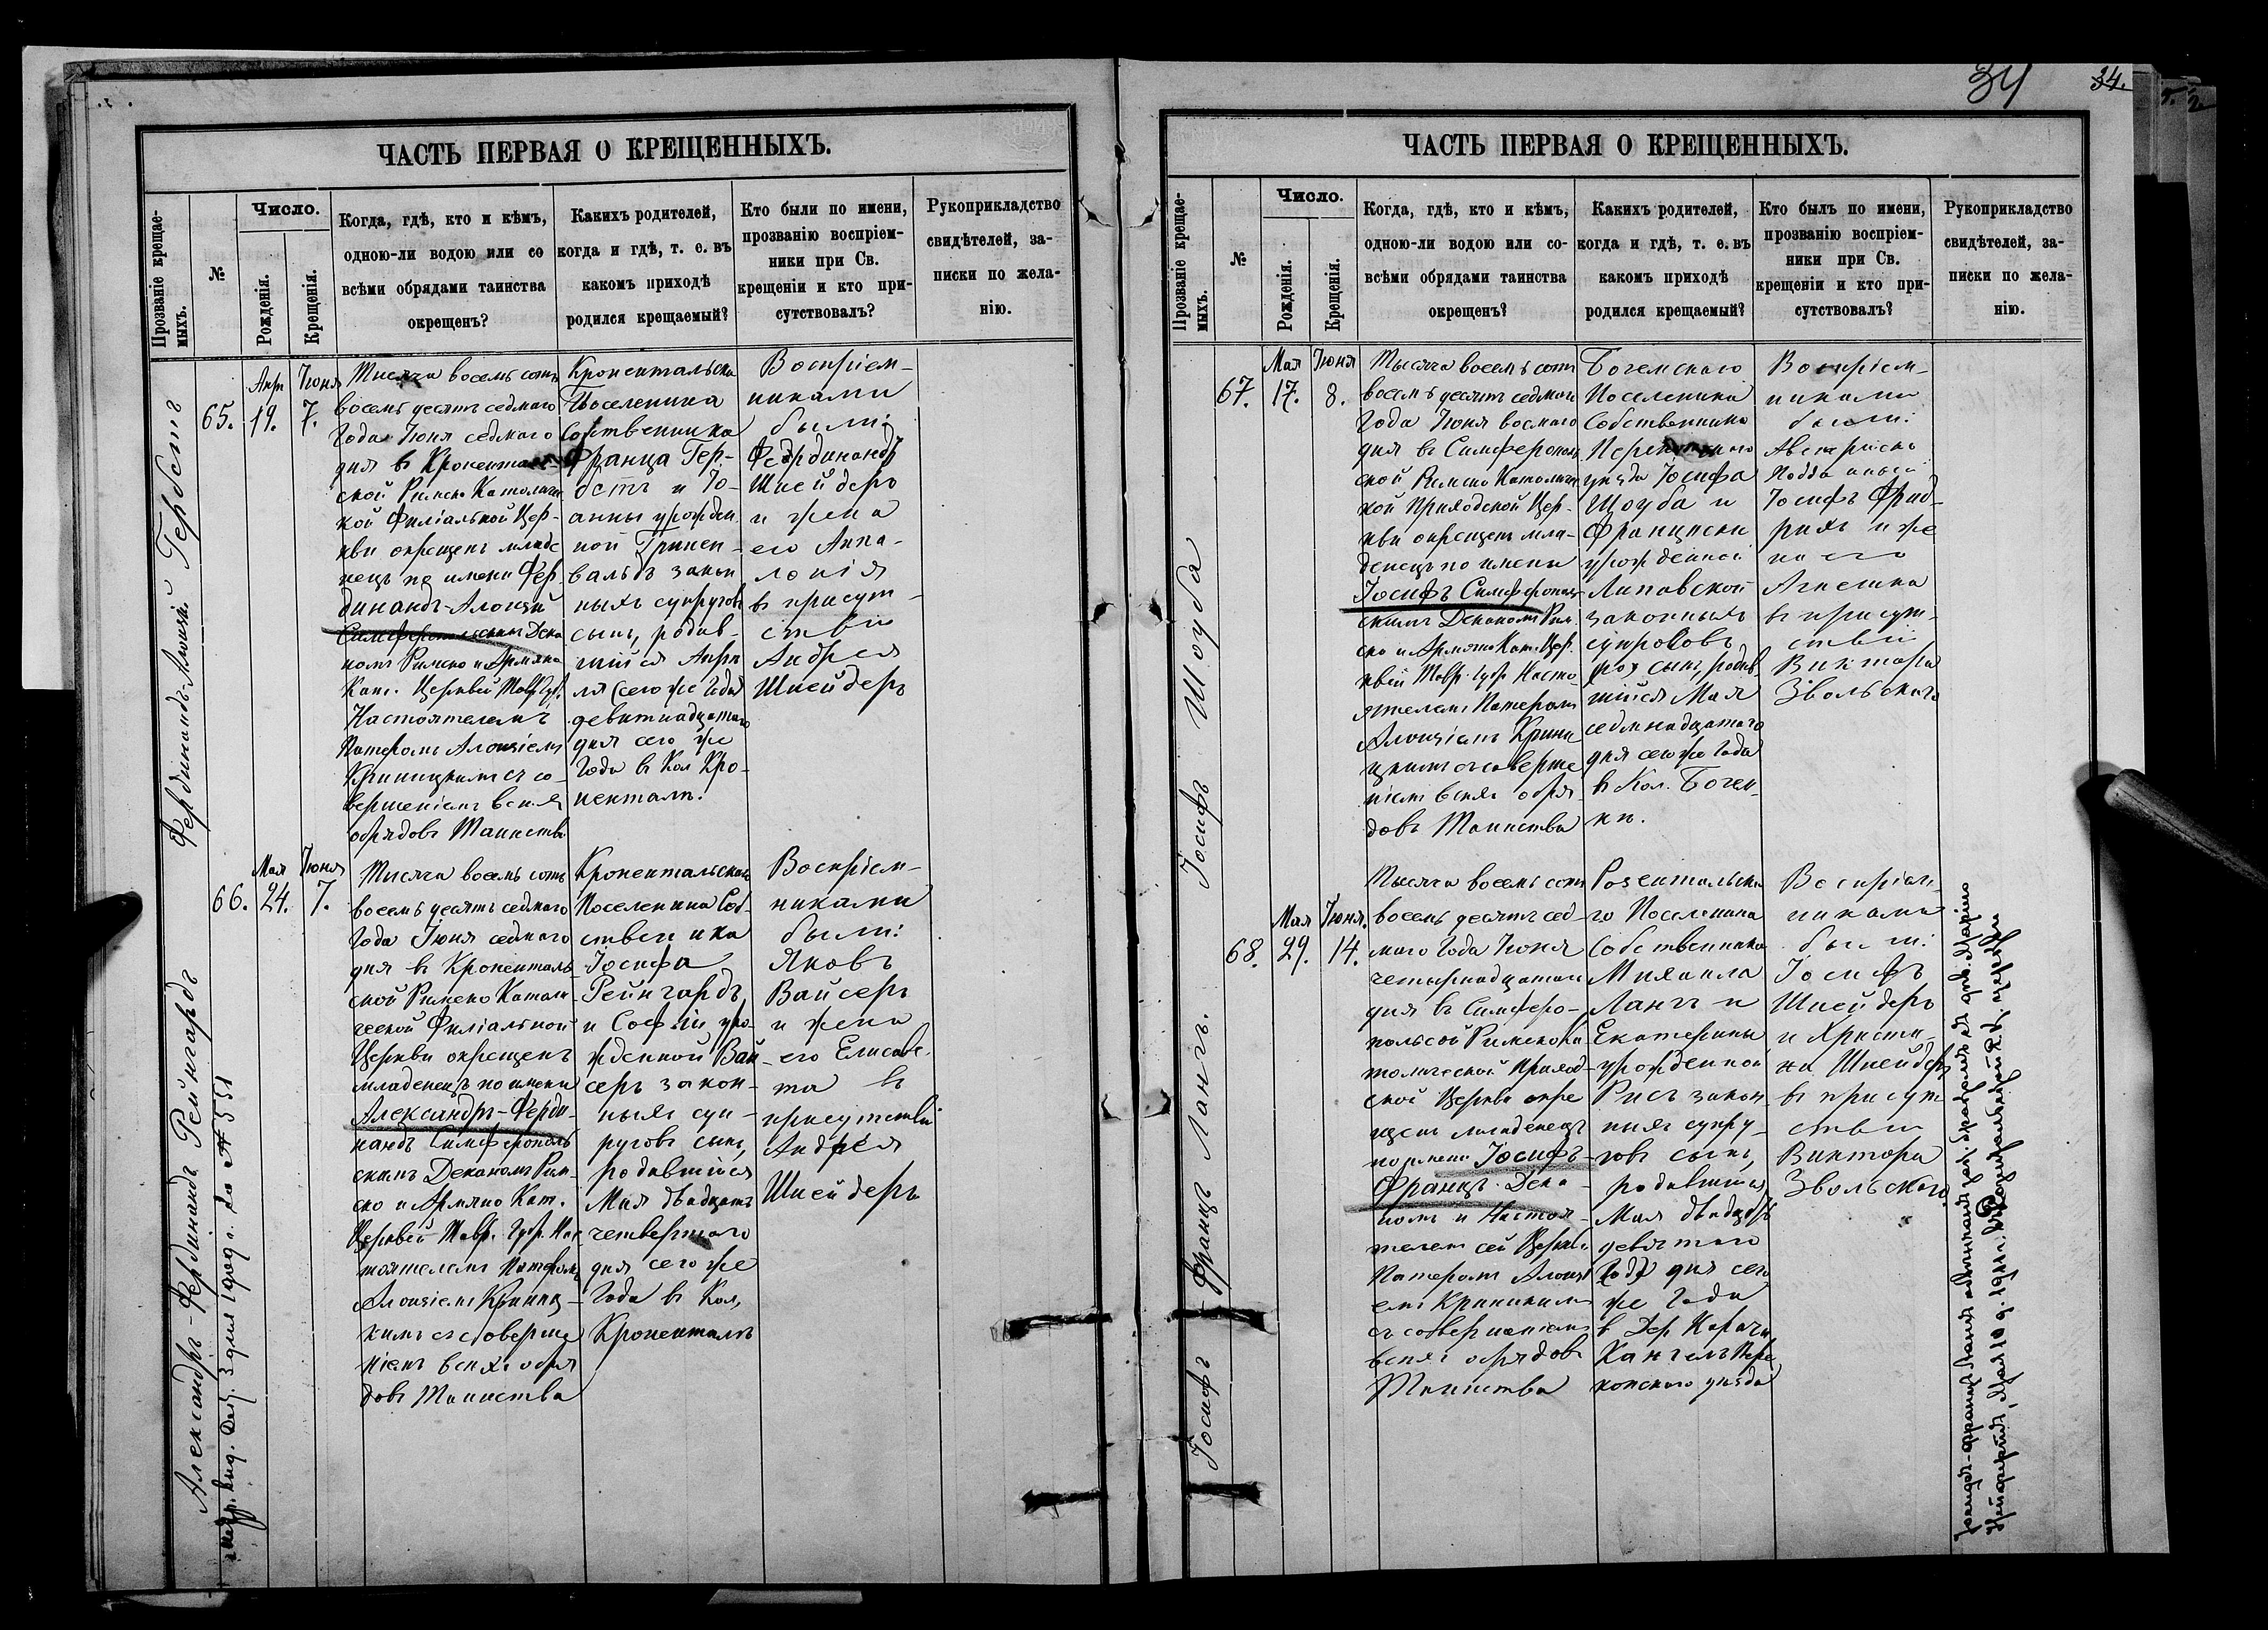 34
34.
ЧАСТЬ ПЕРВАЯ О КРЕЩЕННЫХЪ.
Прозваніе крещае-
мыхъ.
№
Число.
Рожденія.
Крещенія.
Когда, гдѣ, кто и кѣмъ,
одною-ли водою или со
всѣми обрядами таинства
окрещенъ?
Какихъ родителей,
когда и гдѣ, т. е. въ
какомъ приходѣ
родился крещаемый?
Кто были по имени,
прозванію воспріем-
ники при Св.
крещеніи и кто при-
сутствовалъ?
Рукоприкладство
свидѣтелей, за-
писки по жела-
нію.
Фердинандъ-Алоизій Гербстъ
65.
Апр
19.
Іюня
7.
Тысяча восемь сотъ
восемьдесятъ седмаго
Года Іюня седмаго
дня въ Кроненталь-
ской Римско Католиче
кой Филіальной Цер-
кви окрещенъ младе
нецъ по имени Фер
динандъ-Алоизій
Симферопольскимъ Дека
номъ Римско и Армяно
Кат. Церквей Тавр. Губ.
Настоятелемъ
Патеромъ Алоизіемъ
Криницкимъ съ со-
вершеніемъ всѣхъ
обрядовъ Таинства
Кронентальска
Поселенина
Собственника
Франца Гер-
бстъ и Іо-
анны урожден
ной Гринен-
вальдъ закон
ныхъ супруговъ
сынъ, родив-
шійся Апрѣ
ля (сего же Года)
девятнадцатаго
дня сего же
Года въ Кол Кро-
ненталь.
Воспріем-
никами
были:
Фердинандъ
Шнейдеръ
и жена
его Аппо-
лонія
въ присут-
ствіи
Андрея
Шнейдеръ
Александръ-Фердинандъ Рейнгардъ
66.
Мая
24.
Іюня
7.
Тысяча восемь сотъ
восемьдесятъ седмаго
Года Іюня седмаго
дня въ Кроненталь
ской Римско Катали
ческой Филіальной
Церкви окрещенъ
младенецъ по имени
Александръ-Ферди-
нандъ Симферополь
скимъ Деканомъ Рим-
ско и Армяно Кат.
Церквей Тавр. Губр. Нас
тоятелемъ Патеромъ
Алоизіемъ Криниц-
кимъ съ соверше
ніемъ всѣхъ обря
довъ Таинства
Кронентальскаго
Поселенина Соб-
ственника
Іосифа
Рейнгардъ
и Софіи уро-
жденной Вай-
серъ закон-
ныхъ суп-
руговъ сынъ,
родившійся
Мая двадцать
четвертаго
дня сего же
Года въ Кол.
Кроненталь
Воспріем-
никами
были:
Яковъ
Вайсеръ
и жена
его Елисаве-
та въ
присутствіи
Андрея
Шнейдеръ
ЧАСТЬ ПЕРВАЯ О КРЕЩЕННЫХЪ.
Прозваніе крещае-
мыхъ.
№
Число.
Рожденія.
Крещенія.
Когда, гдѣ, кто и кѣмъ,
одною-ли водою или со-
всѣми обрядами таинства
окрещенъ?
Какихъ родителей,
когда и гдѣ, т. е. въ
какомъ приходѣ
родился крещаемый?
Кто былъ по имени,
прозванію воспріем-
ники при Св.
крещеніи и кто при-
сутствовалъ?
Рукоприкладство
свидѣтелей, за-
писки по жела-
нію.
Іосифъ Шоуба
67.
Мая
17.
Іюня
8.
Тысяча восемь сотъ
восемьдесятъ седмаго
Года Іюня восмаго
дня въ Симферополь
ской Римско Католиче
кой Приходской Цер-
кви окрещенъ мла-
денецъ по имени
Іосифъ Симферополь
скимъ Деканомъ Рим.
ско и Армяно Кат. Цер.
квей Тавр. Губр. Насто-
ятелемъ Патеромъ
Алоизіемъ Крини
цкимъ съ соверше
ніемъ всѣхъ обря
довъ Таинства
Богемскаго
Поселенина
Собственника
Перекопскаго
уѣзда Іосифа
Шоуба и
Франциски
урожденной
Липовской
законныхъ
супруговъ
сынъ, родив
шійся Мая
седмнадцатаго
дня сего же Года
въ Кол. Богем-
ки.
Воспріем-
никами
были:
Австрійско
Подданный
Іосифъ Фрид-
рихъ и же
на его
Агнешка
въ присут-
ствіи
Виктора
Звольскаго
Іосифъ - Францъ Лангъ.
68.
Мая
29.
Іюня.
14.
Тысяча восемь сотъ
восемь десятъ сед-
маго Года Іюня
четырнадцатаго
дня въ Симферо-
польсой Римско Ка
толической Приход-
ской Церкви окре
щенъ младенецъ
по имени Іосифъ-
Францъ Дека-
номъ и Настоя-
телемъ сей Церкви
Патеромъ Алоизі
емъ Криницкимъ
съ совершеніемъ
всѣхъ обрядовъ
Таинства
Розентальска
го Поселенина
Собственника
Михаила
Лангъ и
Екатерины
урожденной
Рисъ закон-
ныхъ супру-
говъ сынъ,
родившійся
Мая двадцать
девятаго
дня сего
же Года
въ Дер. Карача
Кангилъ Пере
копскаго уѣзда
Воспріем-
никами
были:
Іосифъ
Шнейдеръ
и Христи-
на Шнейдеръ
въ присут
ствіи
Виктора
Звольскаго